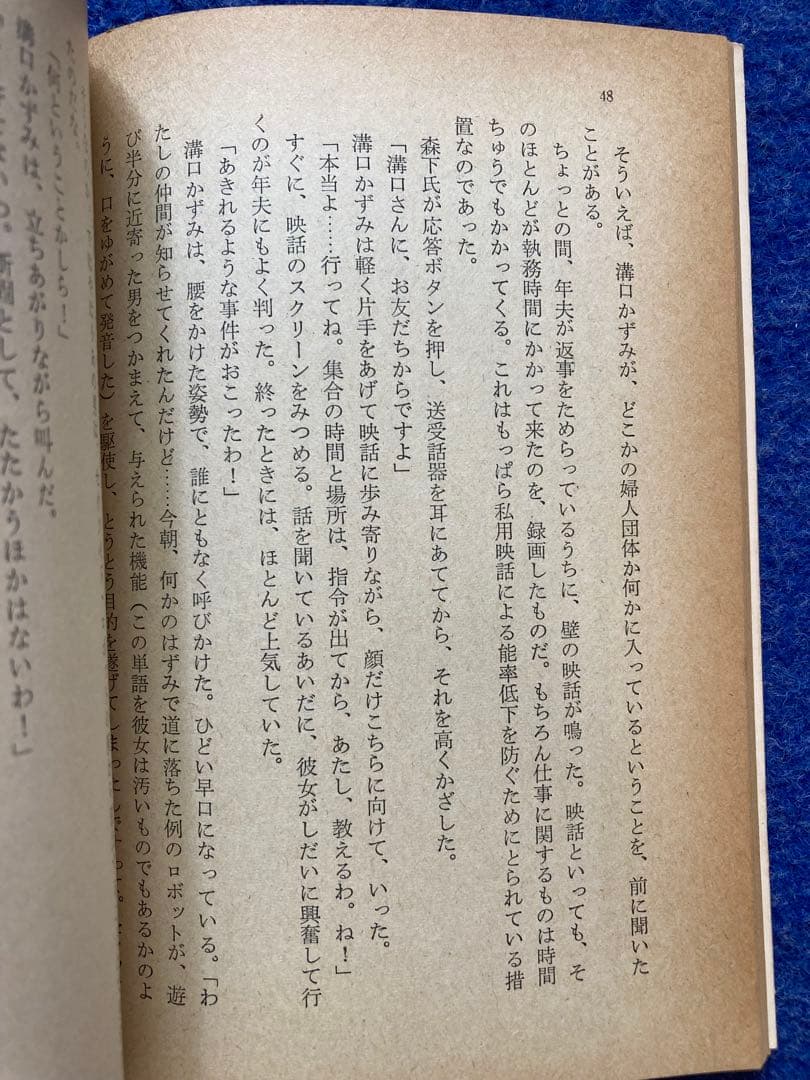 48
そういえば、溝口かずみが、どこかの婦人団体か何かに入っているということを、前に聞いた
ことがある。
ちょっとの間、年夫が返事をためらっているうちに、壁の映話が鳴った。映話といっても、そ
のほとんどが執務時間にかかって来たのを、録画したものだ。もちろん仕事に関するものは時間
ちゅうでもかかってくる。これはもっぱら私用映話による能率低下を防ぐためにとられている措
置なのであった。
森下氏が応答ボタンを押し、送受話器を耳にあててから、それを高くかざした。
「溝口さんに、お友だちからですよ」
溝口かずみは軽く片手をあげて映話に歩み寄りながら、顔だけこちらに向けて、いった。
「本当よ……行ってね。集合の時間と場所は、指令が出てから、あたし、教えるわ。ね！」
すぐに、映話のスクリーンをみつめる。話を聞いているあいだに、彼女がしだいに興奮して行
くのが年夫にもよく判った。終ったときには、ほとんど上気していた。
「あきれるような事件がおこったわ！」
溝口かずみは、腰をかけた姿勢で、誰にともなく呼びかけた。ひどい早口になっている。「わ
たしの仲間が知らせてくれたんだけど……今朝、何かのはずみで道に落ちた例のロボットが、遊
び半分に近寄った男をつかまえて、与えられた機能（この単語を彼女は汚いものでもあるかのよ
うに、口をゆがめて発音した）を駆使し、とうとう目的を遂げてしまったんですって。
（何ということかしら！」
溝口かずみは、立ちあがりながら叫んだ。
たたかうほかはないわ！」